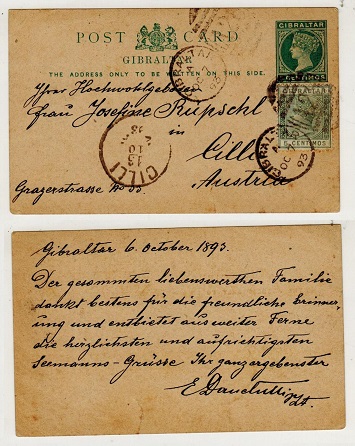 POST CARD
GIBRALTAR
THE ADDRESS ONLY TO BE WRITTEN ON THIS SIDE.
GIBRALTAR
5 CENTIMOS
GIBRALTAR
5 CENTIMOS
GIBRALTAR
OC 7
93
GIBRALTAR
A
OC 7
93
Ihrer Hochwohlgeboren
Frau Josefine Rupschl
in
Cilli
Austria
Grazerstrasse No 33
CILLI
13
10
Gibraltar 6. October 1893.
Der gesammten liebenswerthen Familie
dankt bestens für die freundliche Erinner,
ung und entbietet aus weiter Ferne
die herzlichsten und aufrichtigsten
Seemanns-Grüsse Ihr ganz ergebenster